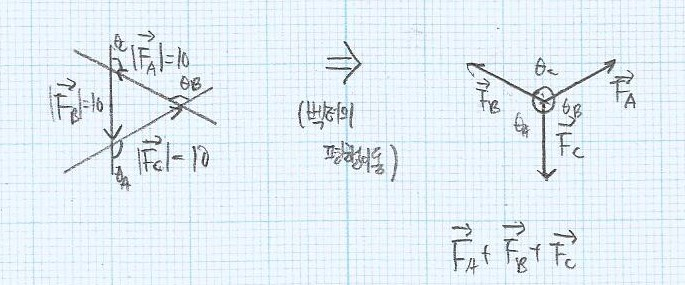 θc |F⃗A|=10
θB
|F⃗B|=10
|F⃗C|=10
θA
⇒
(벡터의
평행이동)
θc
F⃗B
F⃗A
θA
θB
F⃗C
F⃗A + F⃗B + F⃗C